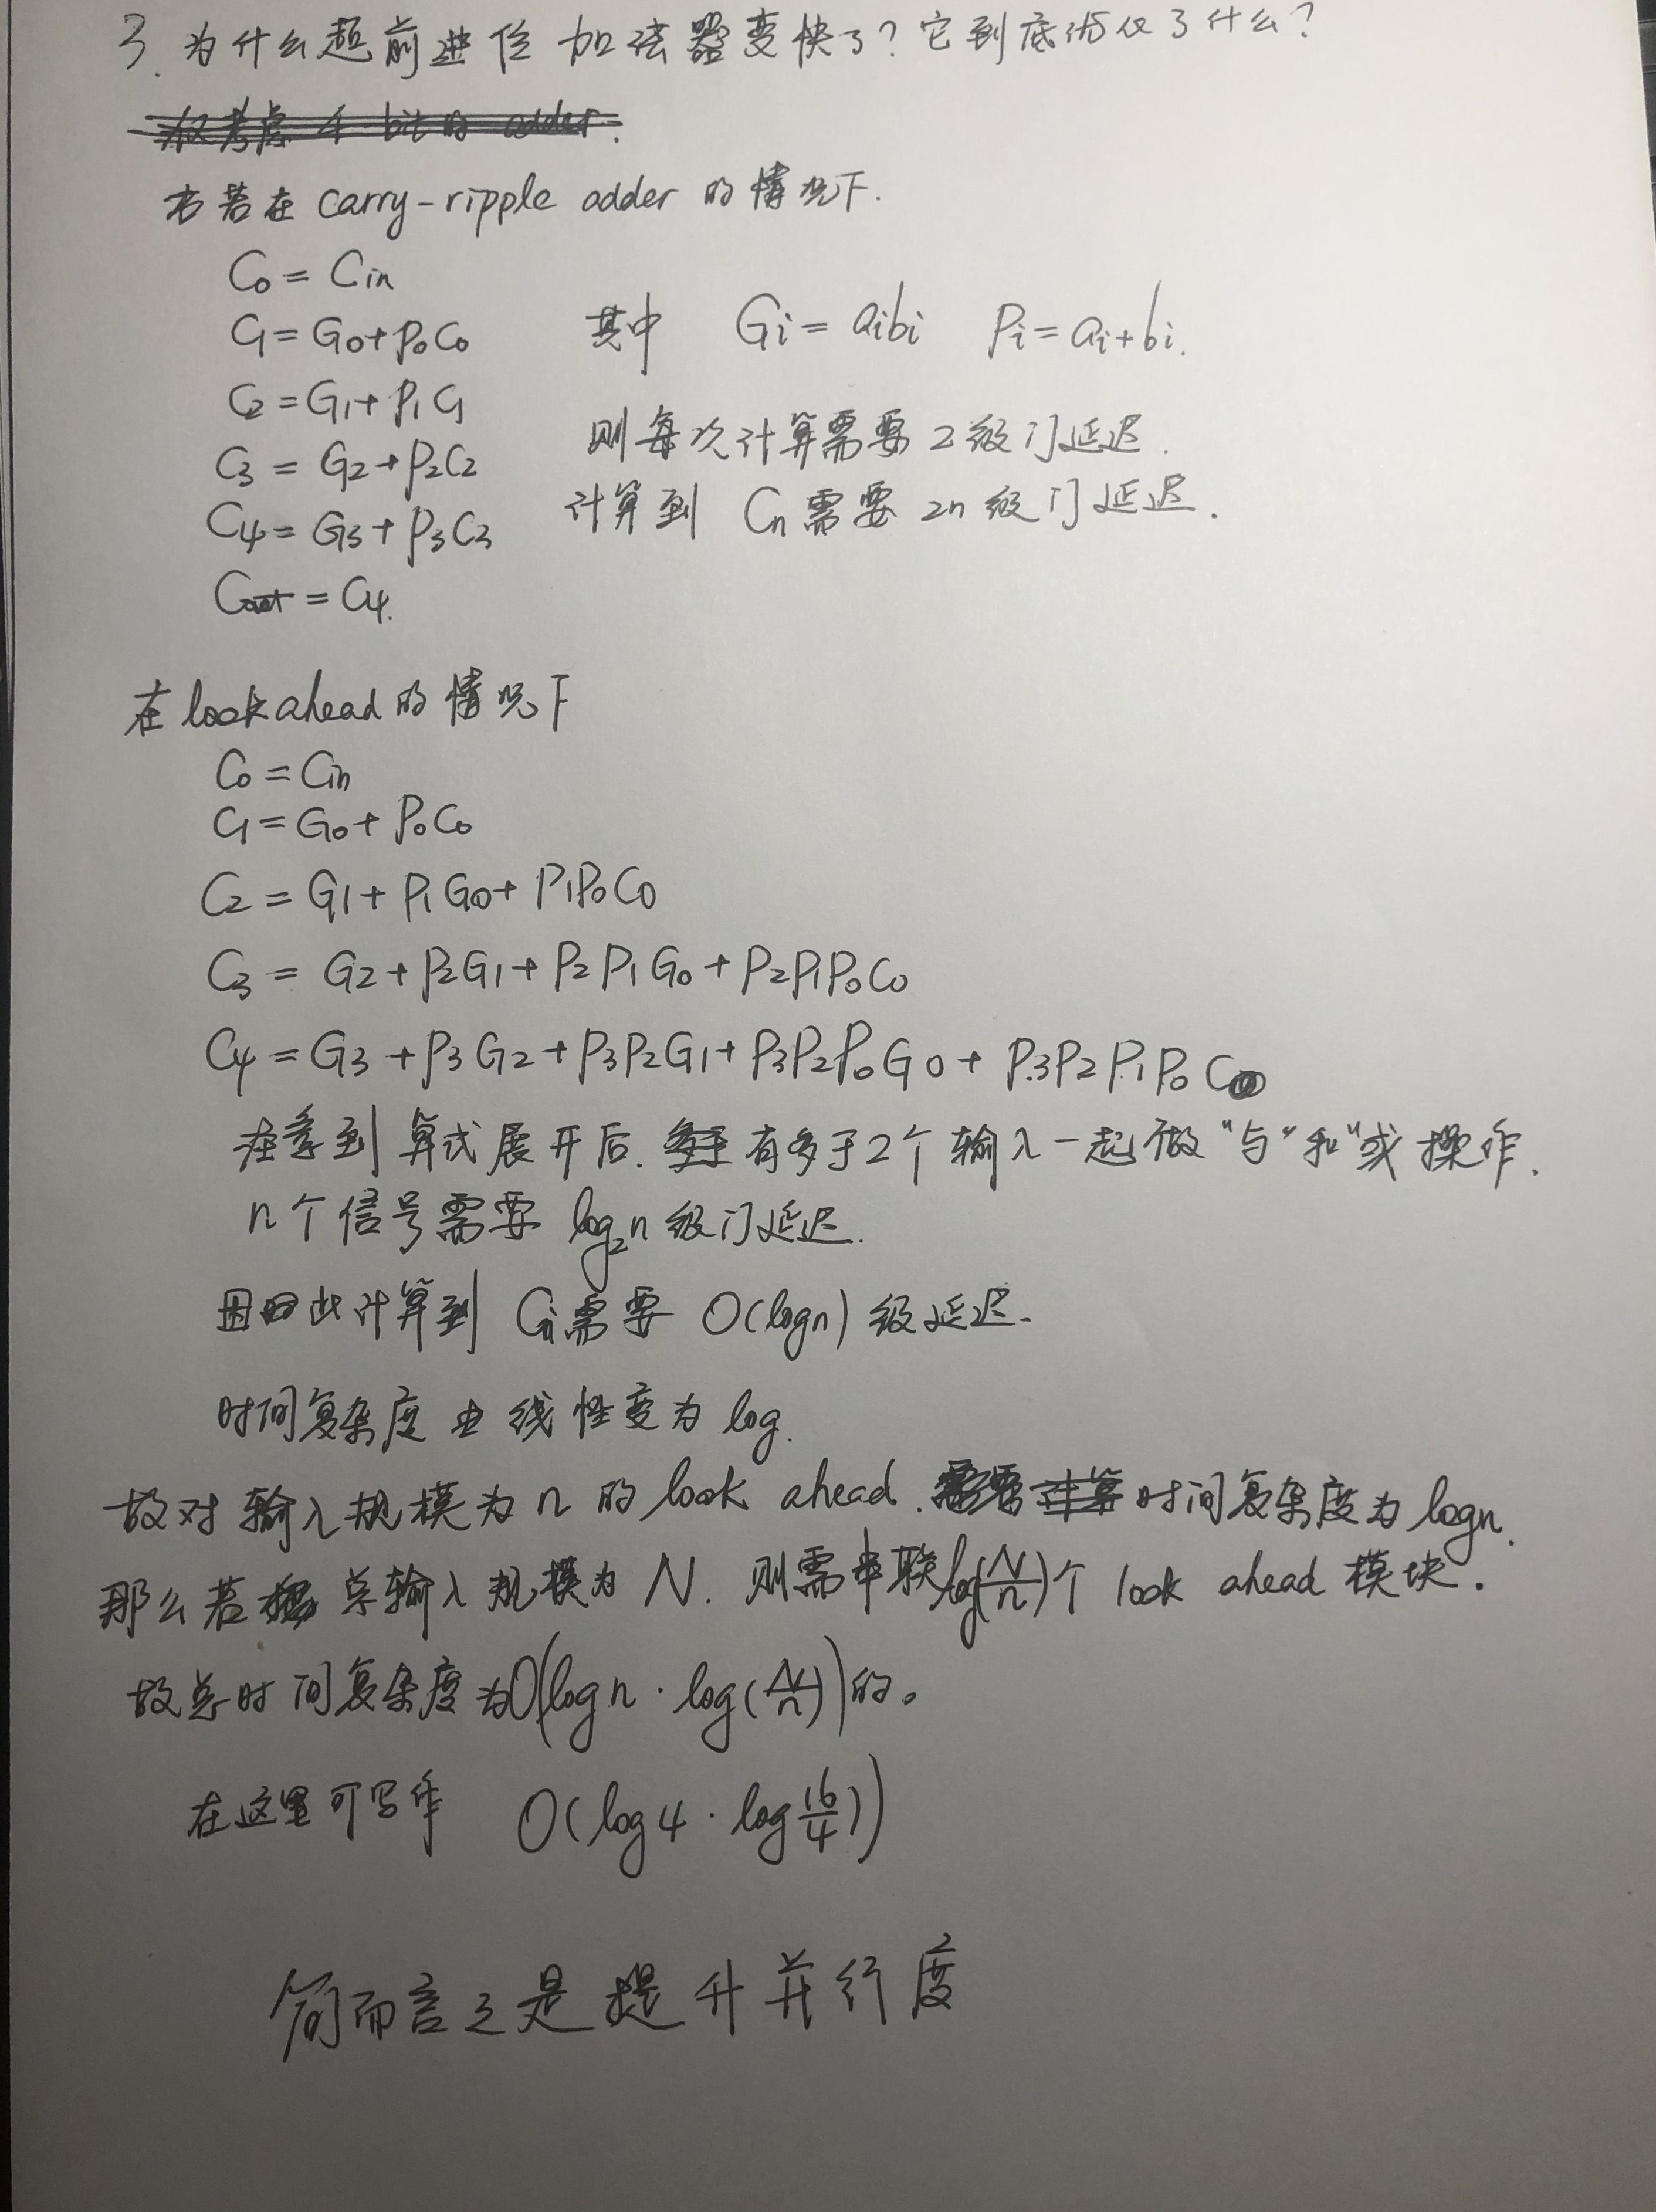 3. 为什么超前进位加法器变快了?它到底优化了什么?
仅考虑 4 bit的 adder.
若在 carry-ripple adder 的情况下.
C0 = Cin
C1 = G0+P0C0 其中 Gi = aibi Pi = ai+bi.
C2 = G1+P1C1 则每次计算需要2级门延迟.
C3 = G2+P2C2
C4 = G3+P3C3 计算到 Cn需要 2n级门延迟.
Cout = C4.
在look ahead的情况下
C0 = Cin
C1 = G0+P0C0
C2 = G1+P1G0+P1P0C0
C3 = G2+P2G1+P2P1G0+P2P1P0C0
C4 = G3+P3G2+P3P2G1+P3P2P0G0+P3P2P1P0C0
注意到算式展开后. 有多于2个输入一起做"与"和"或操作.
n个信号需要 log2n级门延迟.
因此计算到 需要 O(logn)级延迟.
时间复杂度由线性变为log.
故对输入规模为n的look ahead. 时间复杂度为logn.
那么若总输入规模为N. 则需串联log(N/n)个 look ahead 模块.
故总时间复杂度为O(logn·log(N/n))的。
在这里可写作 O(log4·log16/4))
简而言之是提升并行度